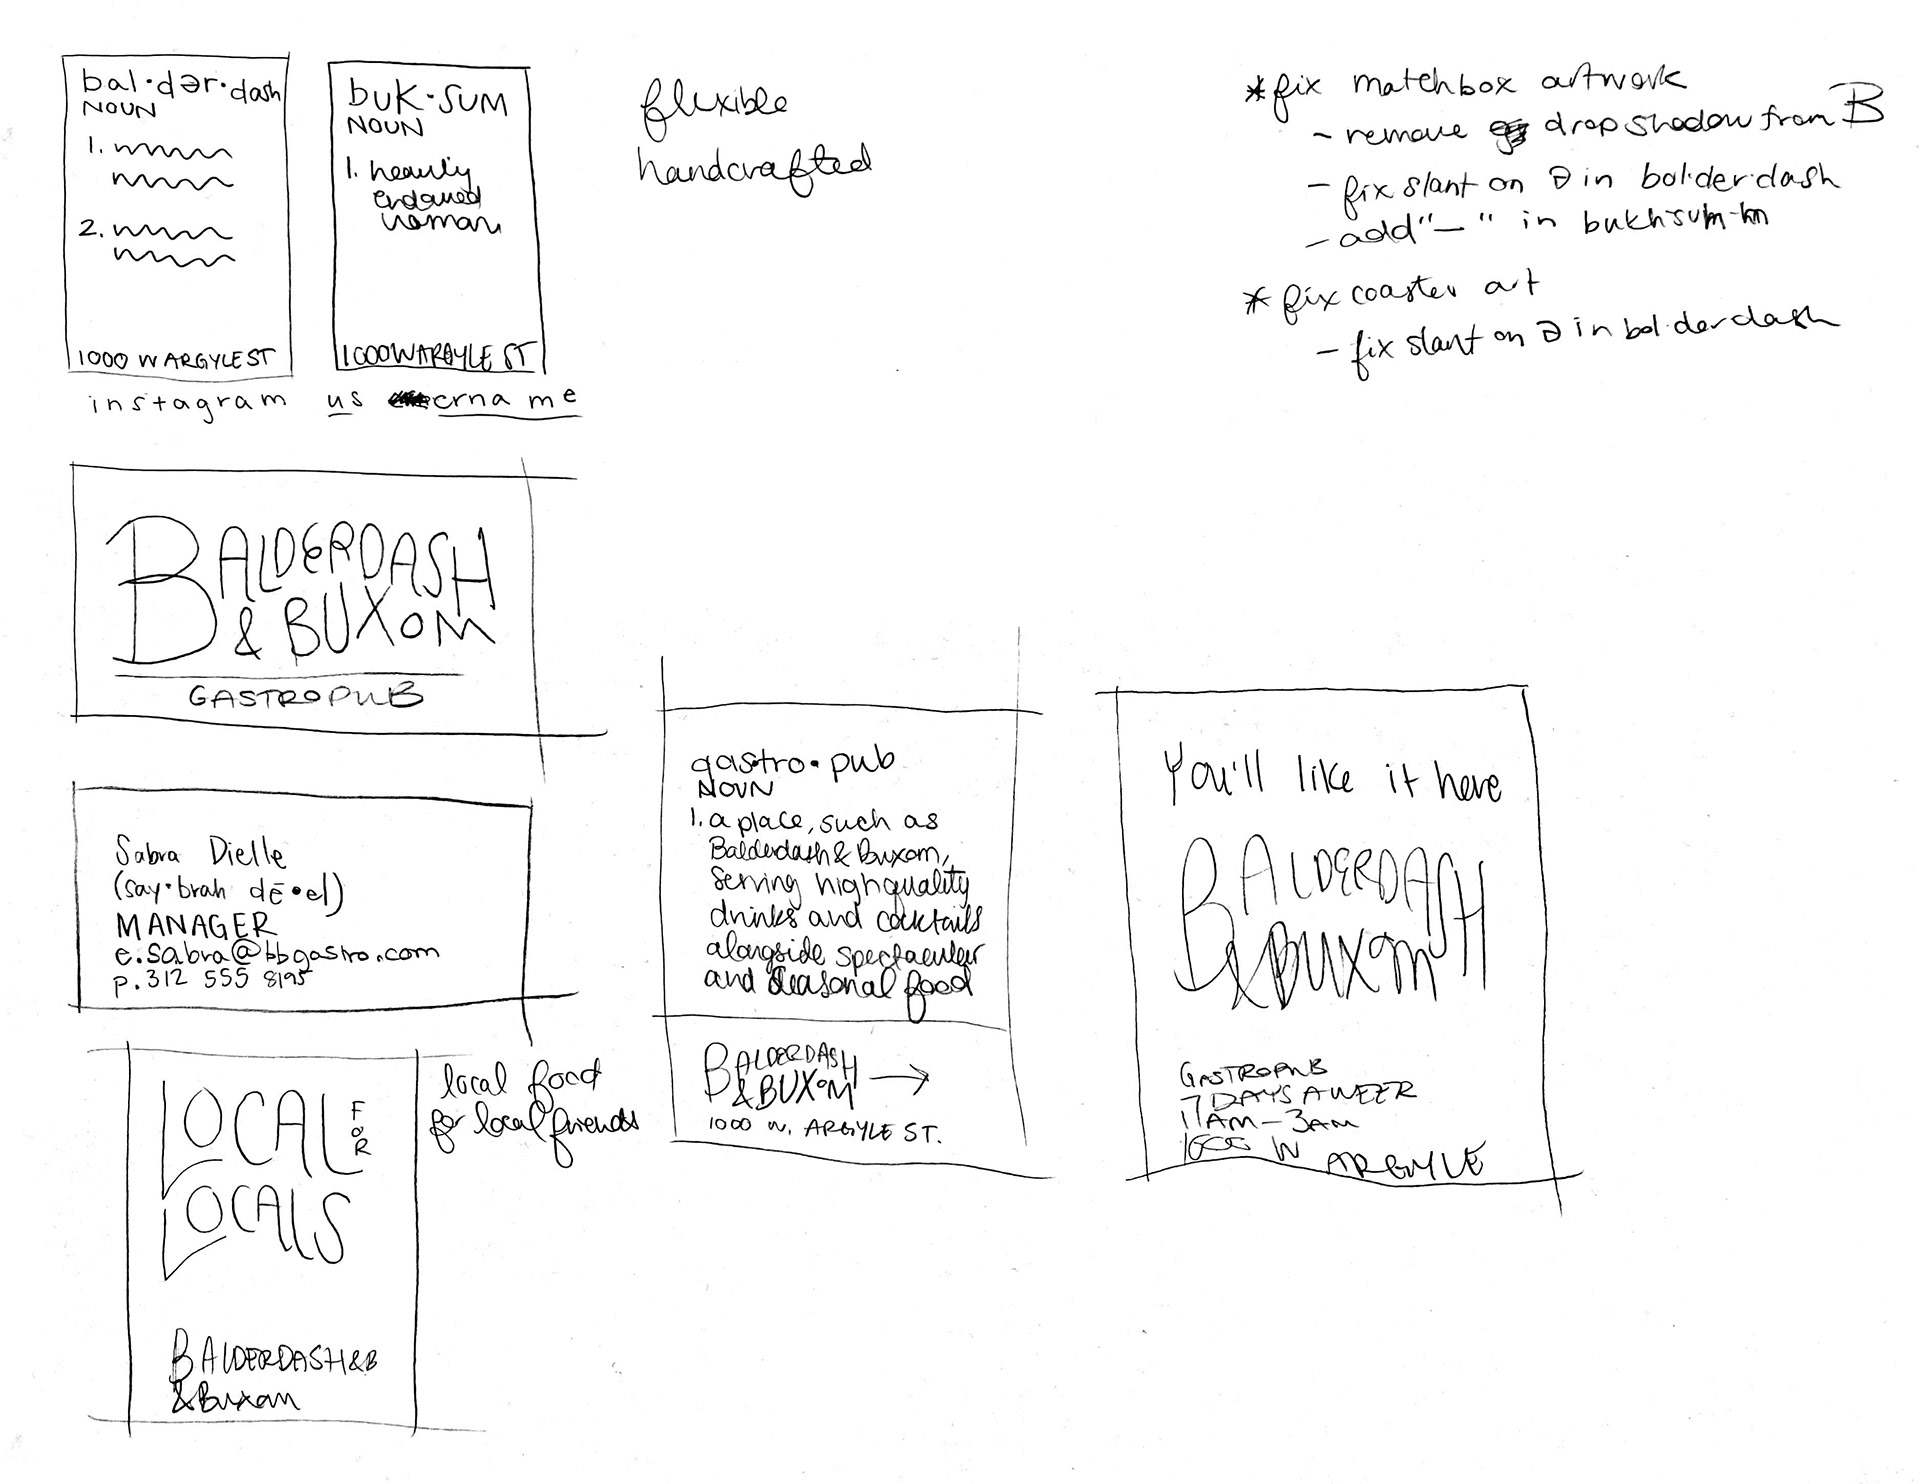 bal·dər·dash
NOUN
1.
2.
1000 W ARGYLE ST
buk·sum
NOUN
1. heavily
endowed
woman
1000 W ARGYLE ST
instagram us erna me
flexible
handcrafted
*fix matchbox artwork
- remove drop shadow from B
- fix slant on ə in bal·der·dash
- add "—" in
*fix coaster art
- fix slant on ə in bal·derdash
BALDERDASH
& BUXOM
GASTROPUB
Sabra Dielle
(say·brah dē·el)
MANAGER
e.sabra@bbgastro.com
p.312 555 8195
LOCAL
FOR
LOCALS
BALDERDASH&B
&Buxom
local food
for local friends
gas·tro·pub
NOUN
1. a place, such as
Balderdash & Buxom,
serving high quality
drinks and cocktails
alongside spectacular
and seasonal food
BALDERDASH
& BUXOM →
1000 W. ARGYLE ST.
You'll like it here
BALDERDASH
& BUXOM
GASTROPUB
7 DAYS A WEEK
11AM – 3AM
1000 W ARGYLE